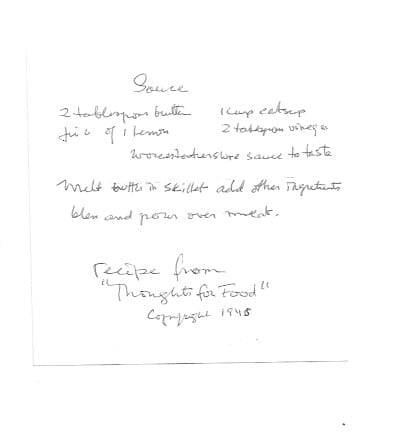 Sauce
2 tablespoon butter 1 cup catsup
juice of 1 lemon 2 tablespoon vinegar
worcestershire sauce to taste
Melt butter in skillet add other ingredients
blen and pour over meat.
recipe from
"Thoughts for Food"
Copyright 1946